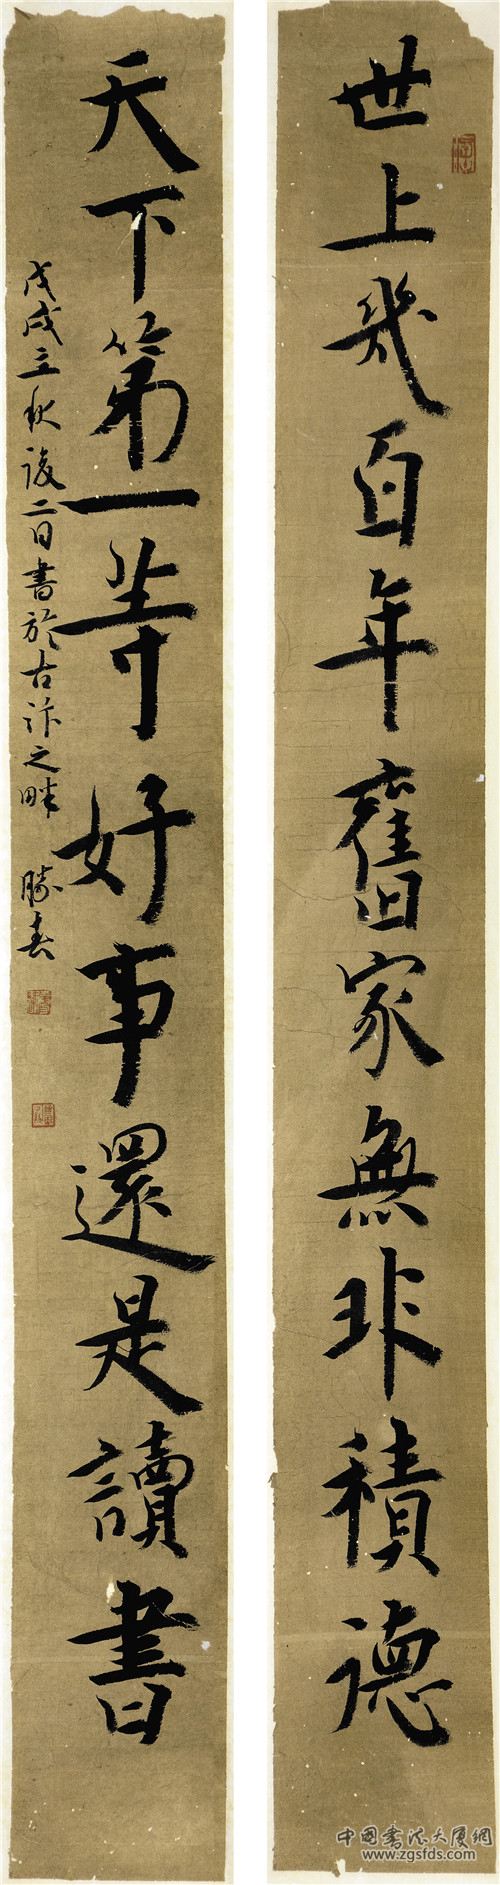 世上幾百年舊家無非積德
天下第一等好事還是讀書
戊戌立秋後二日書於古汴之畔 勝春
中国书法大厦網
www.zgsfds.com